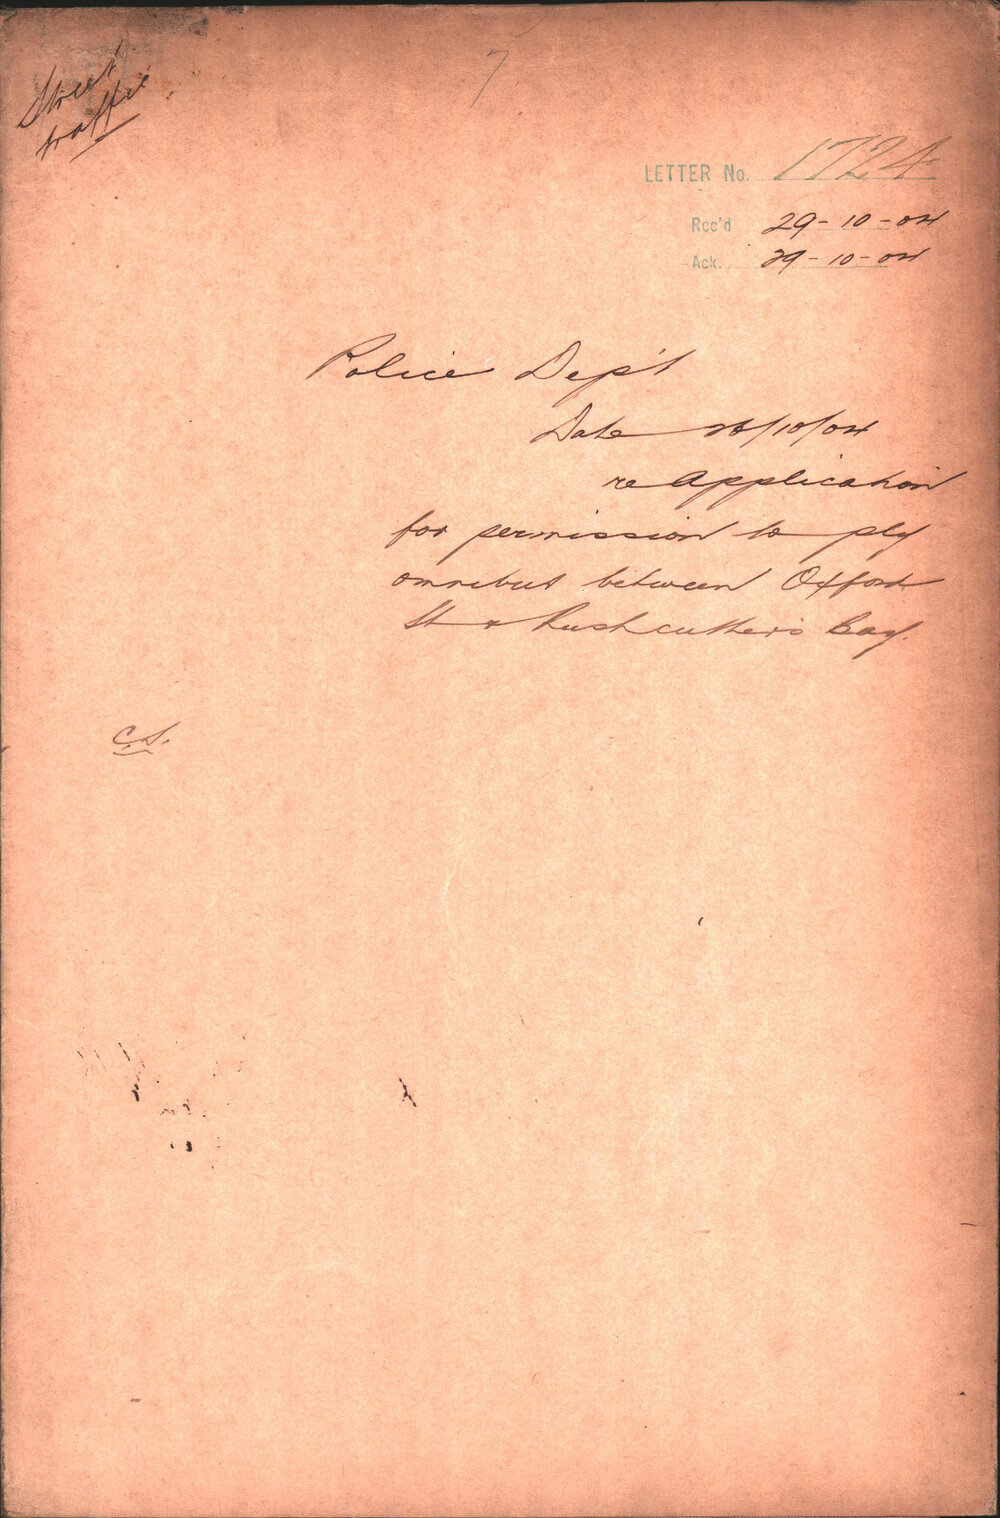 Street
traffic
7
LETTER No. 1724
Rec'd 29-10-04
Ack. 29-10-04
Police Dep't
Date 28/10/04
re Application
for permission to ply
omnibus between Oxford
St & Rushcutter's Bay.
C.S.